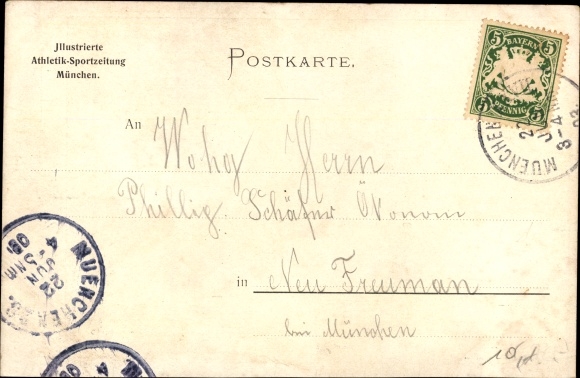 Jllustrierte
Athletik-Sportzeitung
München.
POSTKARTE.
5 BAYERN 5
5 PFENNIG 5
MUENCHEN
8-4
An Wohg Herrn
Phillig. Schäfer Ökonom
in Neu Freuman
bei München
MUENCHEN 23.
22
JUN
4-5NM
02
10,